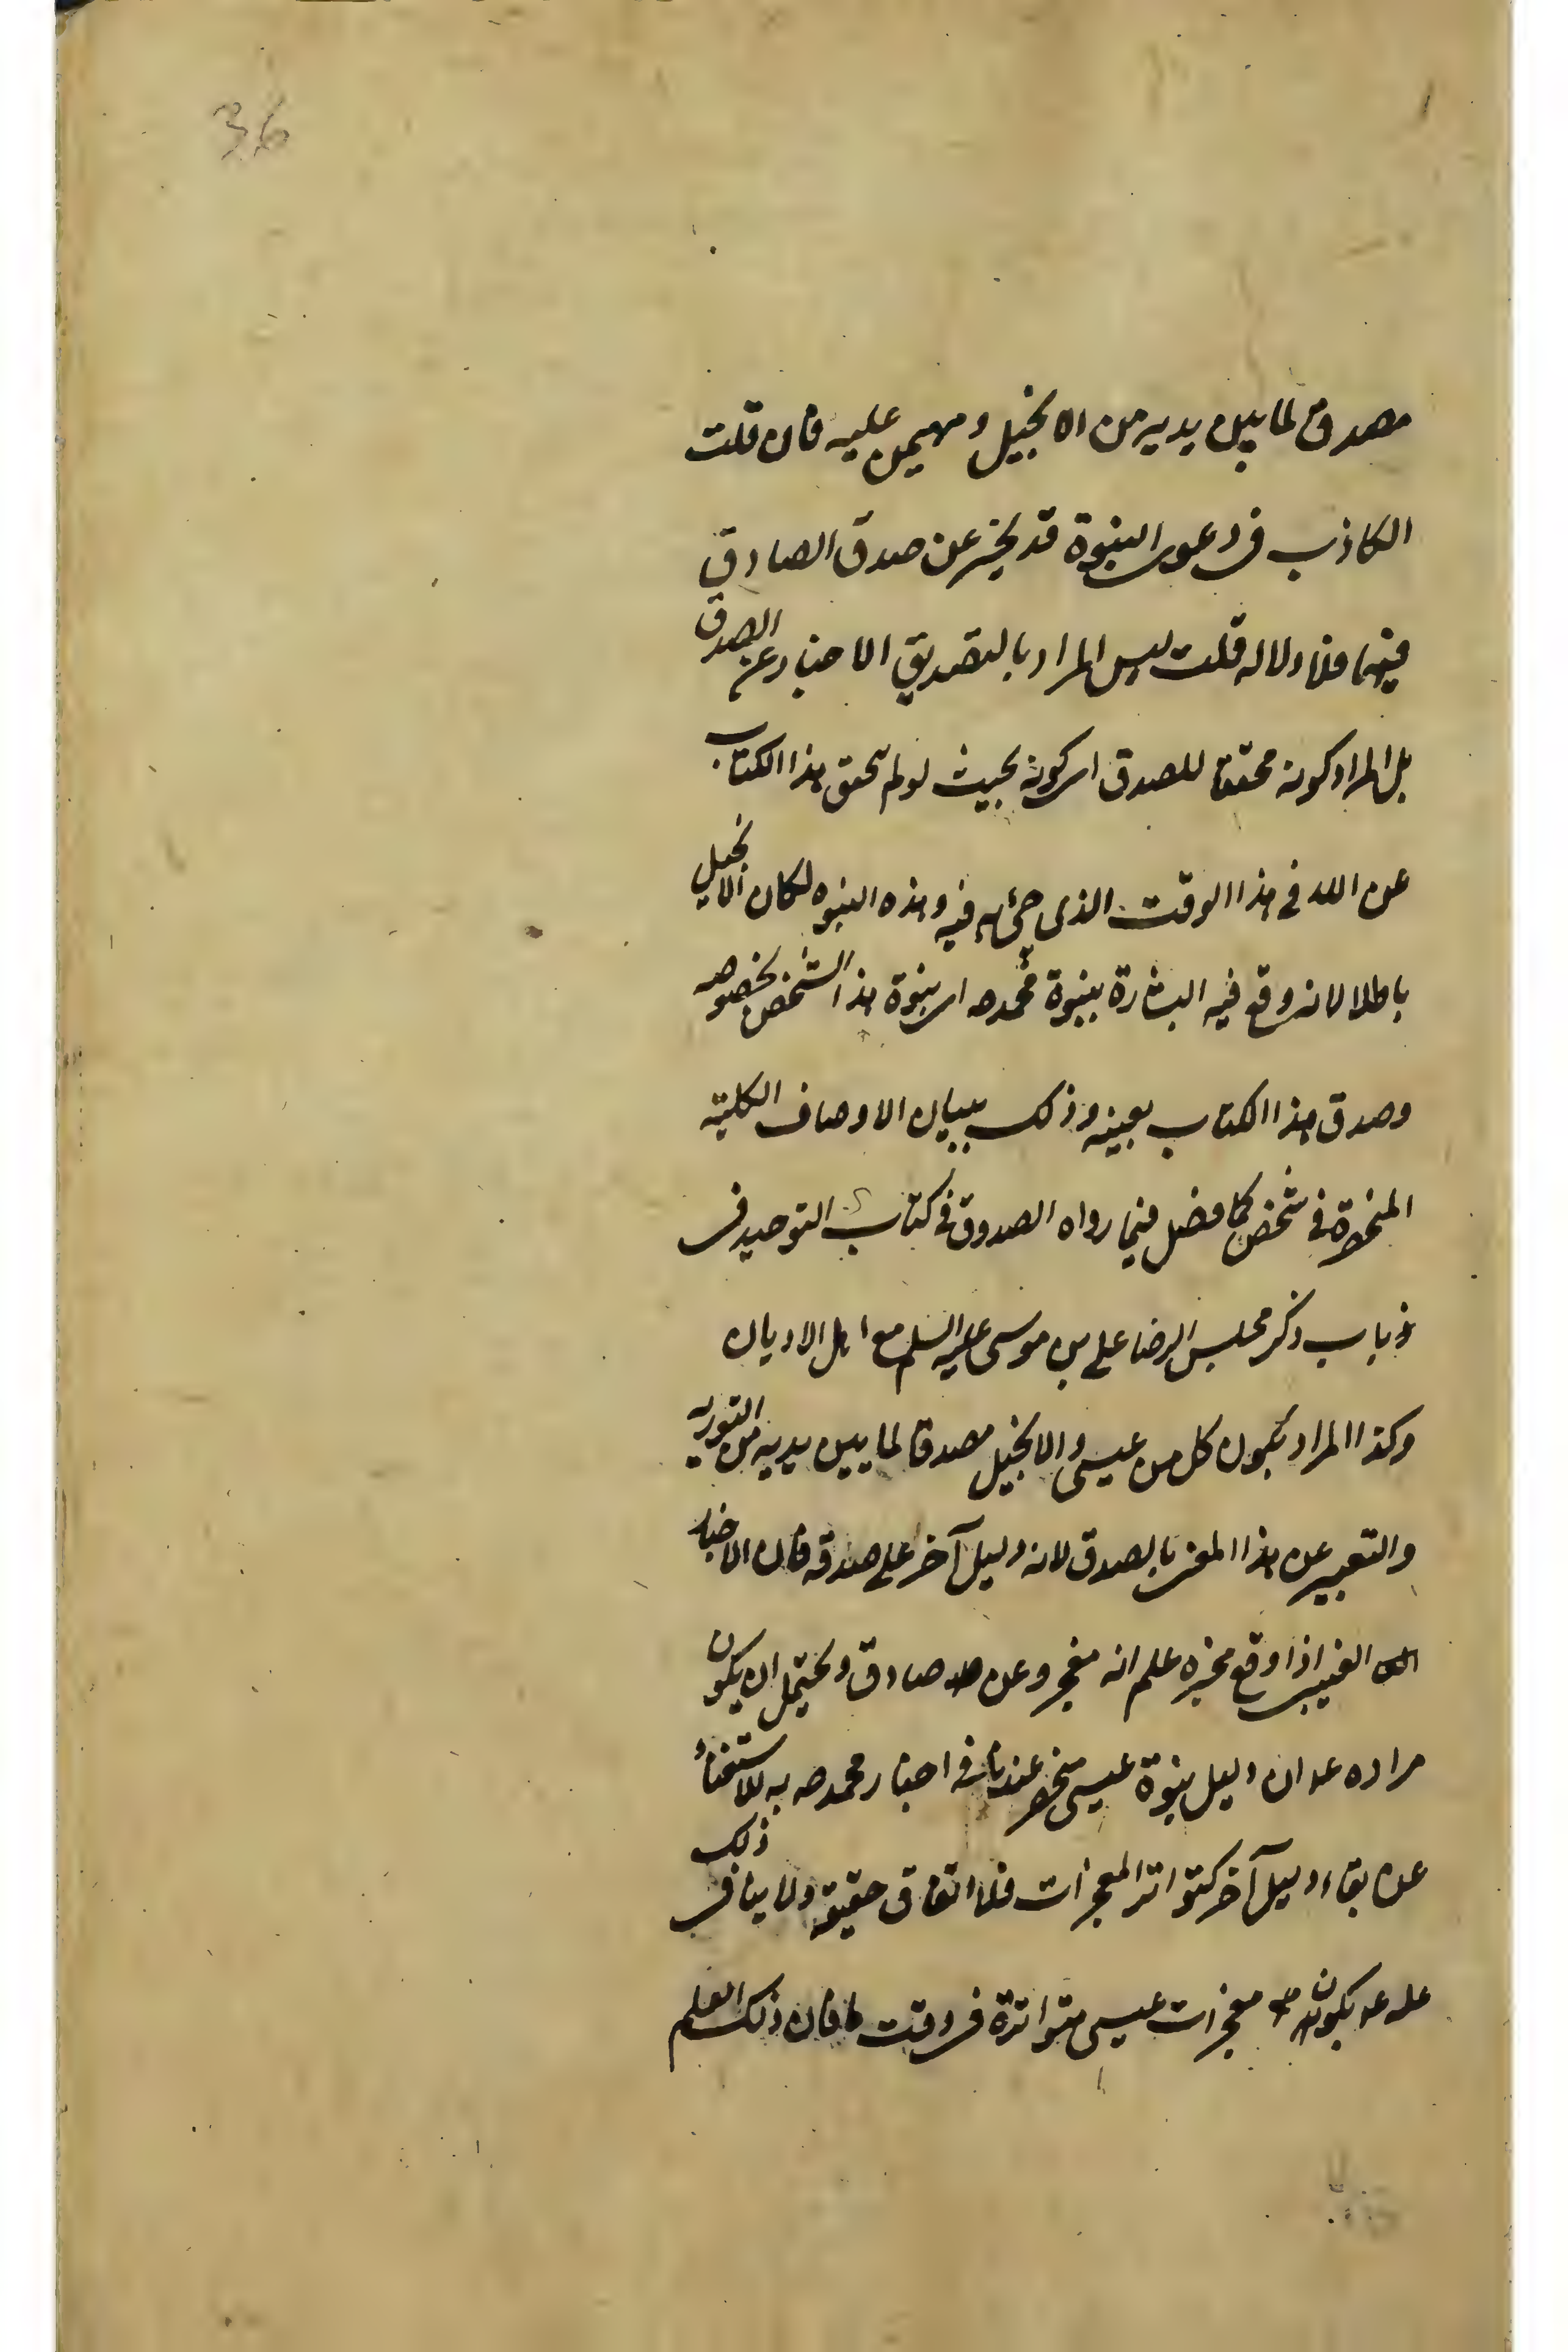 36
مصدق لما بين يديه من الانجيل ومهيمن عليه فان قلت
الكاذب فى دعوى النبوة قد يخبر عن صدق الصادق
فيهما فلا دلاله قلت ليس المراد بالتصديق الاخبار عن الصدق
بل المراد كونه محققا للصدق اى كونه بحيث لو لم يتحقق هذا الكتاب
عن الله فى هذا الوقت الذى جىء به فيه وهذه النبوه لكان الانجيل
باطلا لانه وقع فيه البشارة بنبوة محمد ص اى بنبوة هذا الشخص بخصوصه
وصدق هذا الكتاب بعينه وذلك ببيان الاوصاف الكلية
المنحصرة فى شخص كما فصل فيما رواه الصدوق فى كتاب التوحيد فى
فى باب ذكر مجلس الرضا على بن موسى عليه السلم مع اهل الاديان
وكذا المراد بكون كل من عيسى والانجيل مصدقا لما بين يديه من التورية
والتعبير عن هذا المعنى بالصدق لانه دليل آخر على صدقه فان الاخبار
الغيب اذا وقع مخبره علم انه معجز وعن صادق ويحتمل ان يكون
مراده ع ان دليل نبوة عيسى منحصر عندنا فى اخبار محمد ص به للاستغناء
عن بقاء دليل آخر كتواتر المعجزات فلا اتفاق حقيقة ولا ينافى ذلك
علمه ع بكون معجزات عيسى متواترة فى وقت ما فان ذلك العلم